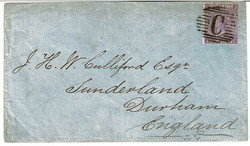 C
J. H. W. Culliford Esqre
Sunderland
Durham
England